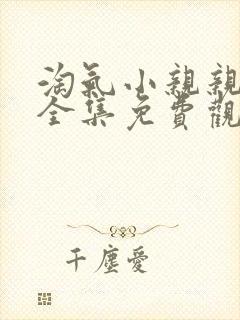 淘氣小親親
全集免費觀
千塵愛